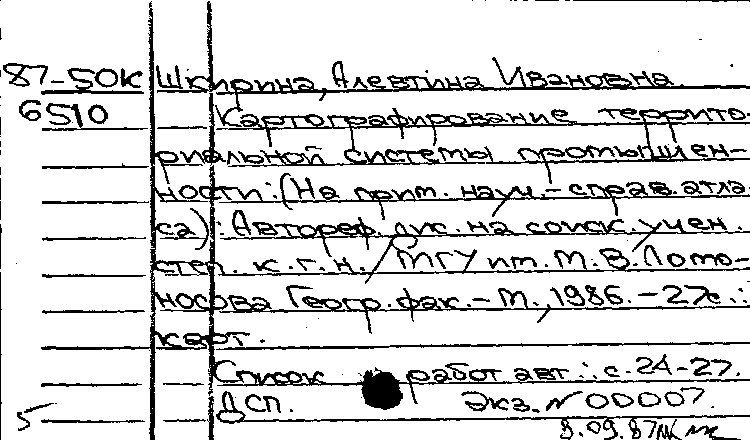 87-50К Шкирина, Алевтина Ивановна.
6510 Картографирование террито-
риальной системы промышлен-
ности: (На прим. науч.-справ. атла-
са): Автореф. дис. на соиск. учен.
степ. к.г.н. / МГУ им. М.В. Ломо-
носова Геогр. фак. - М., 1986. - 27с.:
карт.
Список работ авт.: с. 24-27.
ДСП. Экз. № 00007.
5 8.09.87